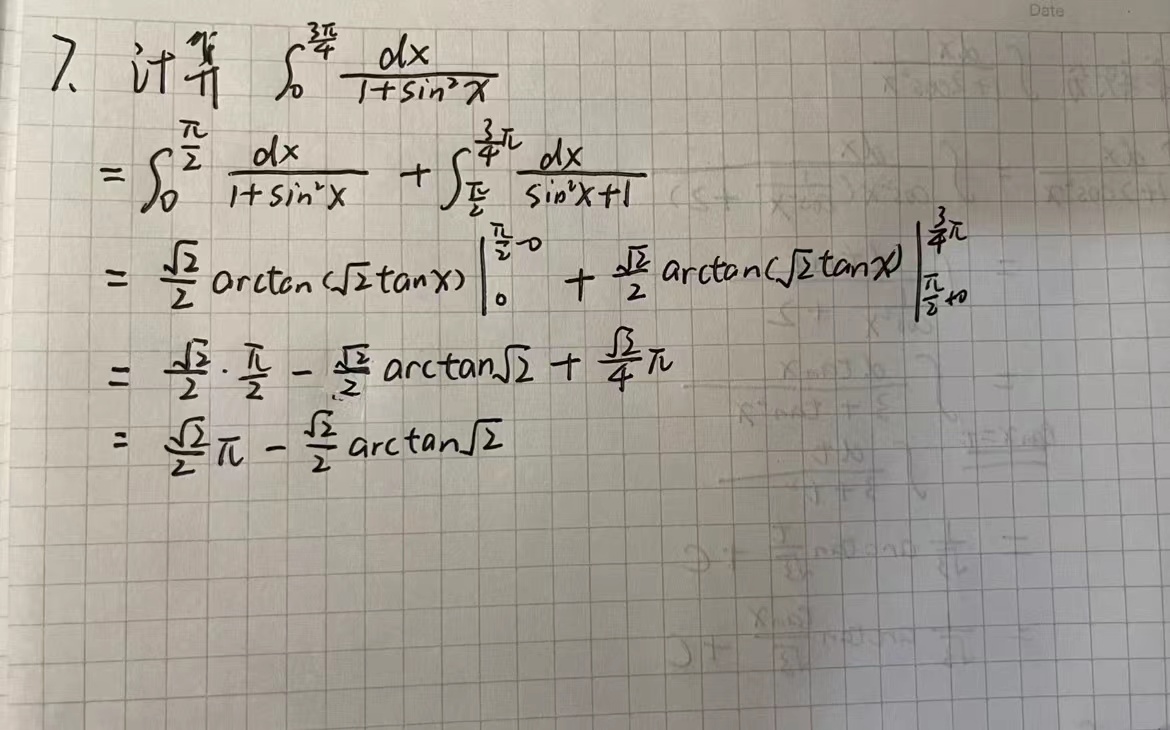 Date
7. 计算 ∫₀^{3π/4} dx/(1+sin²x)
= ∫₀^{π/2} dx/(1+sin²x) + ∫_{π/2}^{3/4 π} dx/(sin²x+1)
= √2/2 arctan(√2 tanx) |₀^{π/2-0} + √2/2 arctan(√2 tanx) |_{π/2+0}^{3/4 π}
= √2/2 · π/2 - √2/2 arctan√2 + √2/4 π
= √2/2 π - √2/2 arctan√2